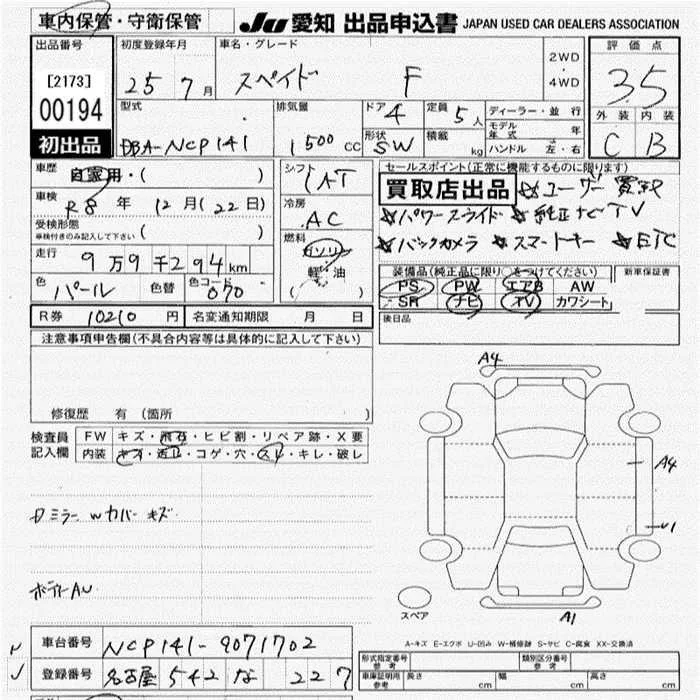 車内保管・守衛保管 JU 愛知 出品申込書 JAPAN USED CAR DEALERS ASSOCIATION
出品番号 初度登録年月 車名・グレード 評価点
[2173] 25 7月 スペイド F 2WD・4WD 3.5
00194 型式 排気量 ドア 4 定員 5人 ディーラー・並行 外装 内装
初出品 DBA-NCP141 1500CC 形状 SW 積載 kg モデル年式 年 ハンドル 左・右 C B
車歴 自家用・( ) シフト IAT セールスポイント(正常に機能するものに限ります)
車検 R8年 12月(22日) 冷房 AC 買取店出品 ☆ユーザー買取
受検形態 車検付きのみ記入して下さい ( ) ☆パワースライド ☆純正ナビTV
走行 9万9千294km 燃料 ガソリン 軽油 ( ) ☆バックカメラ ☆スマートキー ☆ETC
色 パール 色替 色コード 070 装備品(純正品に限り○をつけてください) 新車保証書
PS PW エアB AW
SR ナビ TV カワシート
R券 10210円 名変通知期限 月 日 後日品
注意事項申告欄(不具合内容等は具体的に記入して下さい)
修復歴 有(箇所 )
検査員記入欄 FW キズ・飛石・ヒビ割・リペア跡・X要
内装 キズ・汚れ・コゲ・穴・スレ・キレ・破レ
A4
A4
U1
A1
スペア
Dミラーwカバーキズ
ボディーAU
A-キズ E-エクボ U-凹み W-補修跡 S-サビ C-腐食 XX-交換済
車台番号 NCP141-9071702 形式指定番号 参考 類別区分番号 参考
登録番号 名古屋 542 な 227 車庫証明用 参考 長さ cm 幅 cm 高さ cm